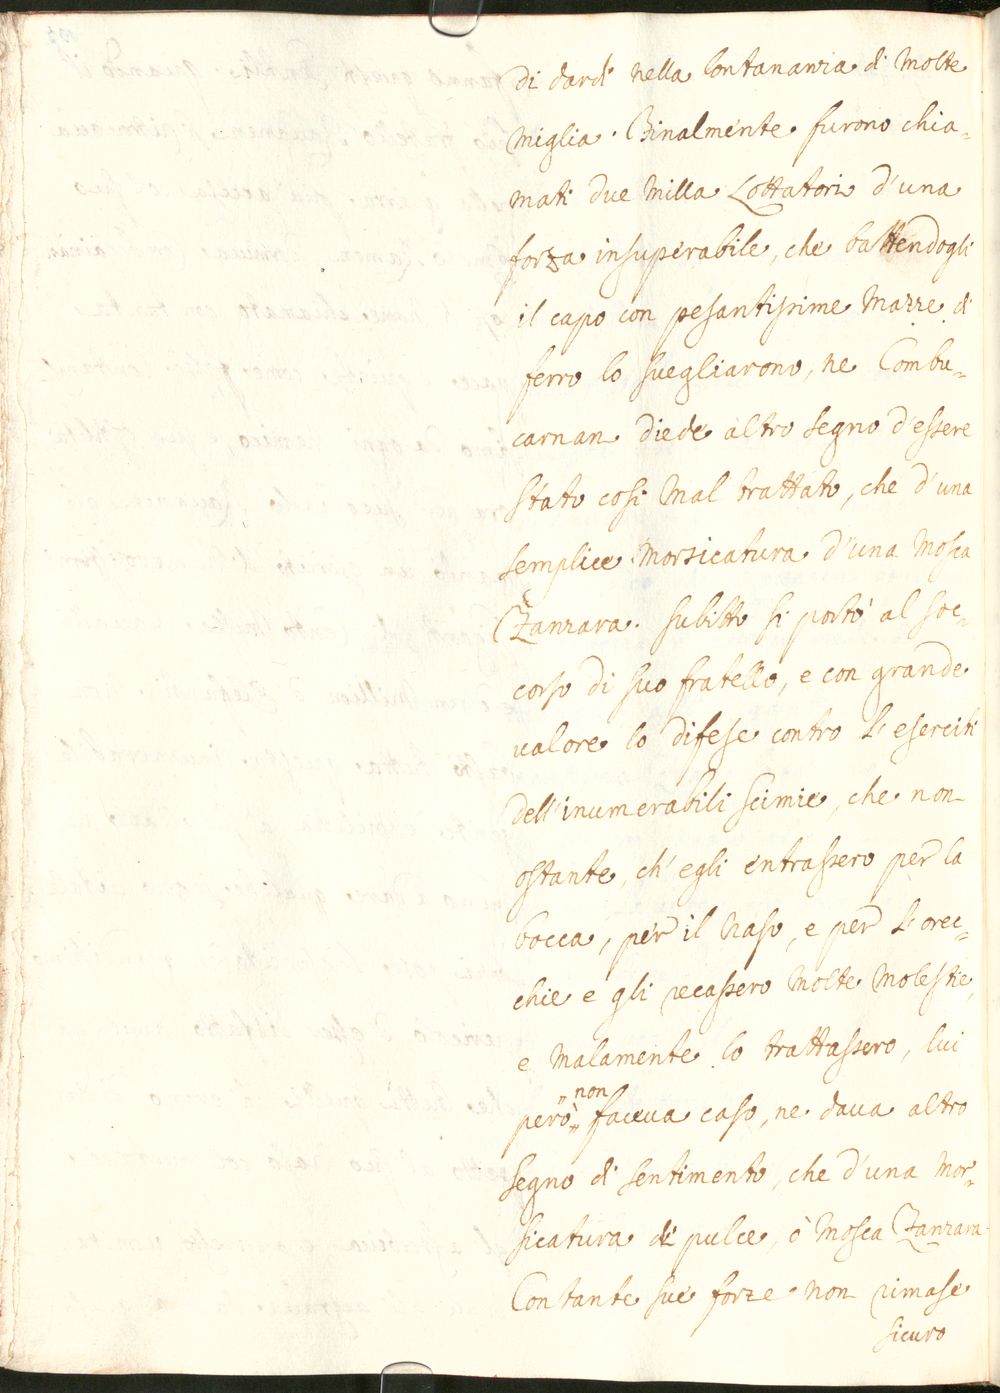 di dardi nella lontananza di molte
miglia. Finalmente furono chia-
mati due milla Lottatori d'una
forza insuperabile, che battendogli
il capo con pesantissime mazze di
ferro lo svegliarono, ne Combu-
carnan diede altro segno d'essere
stato cosi mal trattato, che d'una
semplice morsicatura d'una mosca
Zanzara. subitto si portò al soc-
corso di suo fratello, e con grande
valore lo difese contro l'eserciti
dell'inumerabili scimie, che non
ostante, ch'egli entrassero per la
bocca, per il naso, e per l'orec-
chie e gli recassero molte molestie,
e malamente lo trattassero, lui
però non faceva caso, ne dava altro
segno di sentimento, che d'una mor-
sicatura di pulce, ò mosca Zanzara
Con tante sue forze non rimase
sicuro